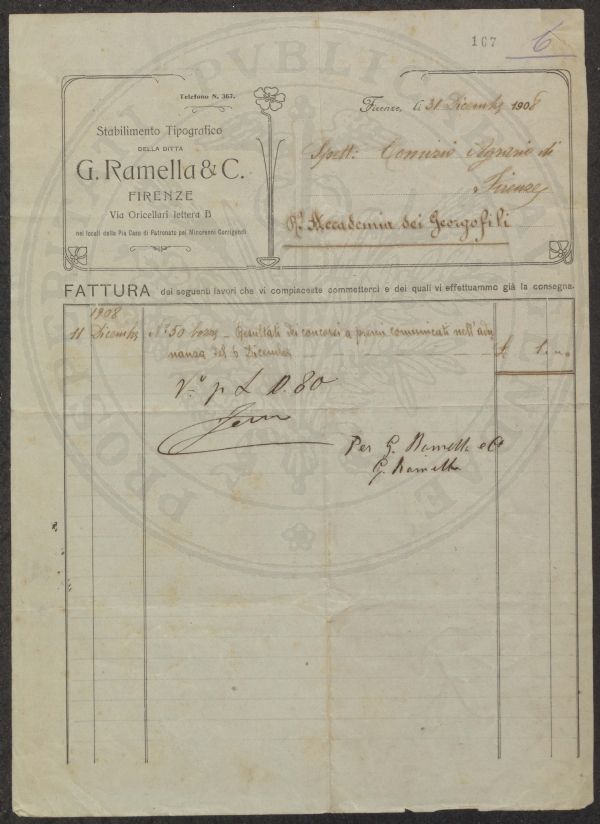 167
6
Telefono N. 367.
Stabilimento Tipografico
DELLA DITTA
G. Ramella & C.
FIRENZE
Via Oricellari lettera B
nei locali della Pia Casa di Patronato pei Minorenni Corrigendi
Firenze, li 31 Dicembre 1908
Spett: Comizio Agrario di
Firenze
R.ª Accademia dei Georgofili
FATTURA dei seguenti lavori che vi compiaceste commetterci e dei quali vi effettuammo già la consegna.
1908
11 Dicembre N.º 50 Resultati dei concorsi a premi comunicati nell'adu-
nanza del 6 Dicembre £
V.º p L 0.80
Per G. Ramella e C
G. Ramella